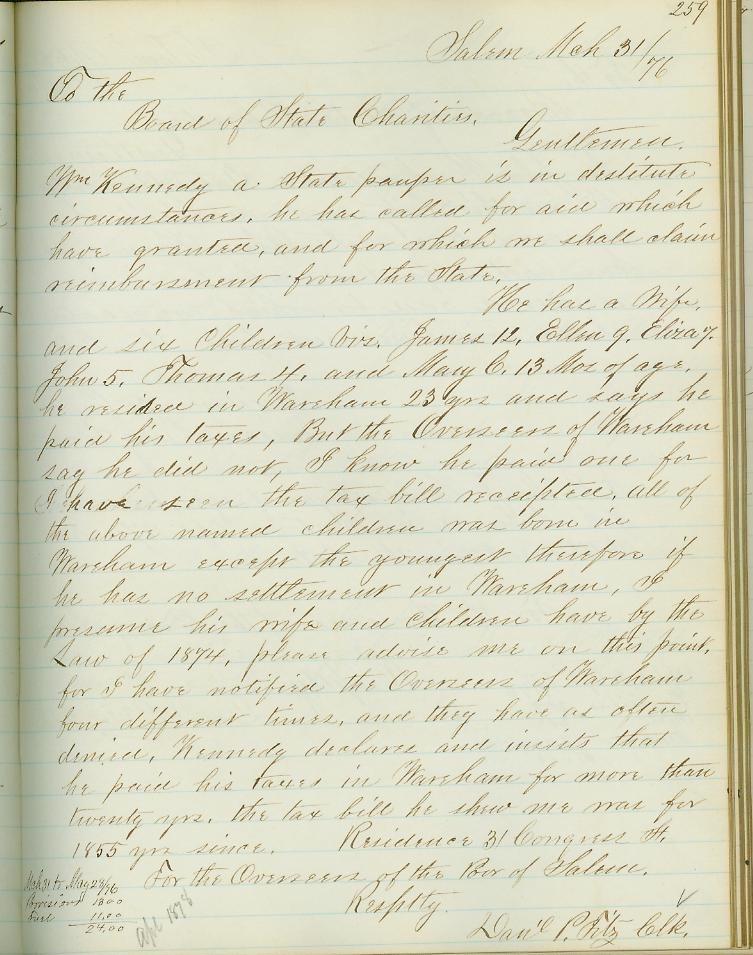 259
Salem Mch 31/76
To the
Board of State Charities.
Gentlemen.
Wm Kennedy a State pauper is in destitute
circumstances, he has called for aid which
have granted, and for which we shall claim
reimbursment from the State.
He has a Wife,
and six Children viz. James 12, Ellen 9, Eliza 7,
John 5, Thomas 4, and Mary C. 13 Mos of age.
he resided in Wareham 23 yrs and says he
paid his taxes, But the Overseers of Wareham
say he did not, I know he paid one for
I have seen the tax bill receipted, all of
the above named children was born in
Wareham except the youngest therefore if
he has no settlement in Wareham, I
presume his wife and children have by the
Law of 1874, please advise me on this point,
for I have notified the Overseers of Wareham
four different times, and they have as often
denied, Kennedy declares and insists that
he paid his taxes in Wareham for more than
twenty yrs. the tax bill he shew me was for
1855 yrs since. Residence 31 Congress St.
For the Overseers of the Poor of Salem.
Resptly
Danl P. Fitz Clk.
Mch 31 to May 28/76
Provisions 13.00
Fuel 11.00
24.00
apl 1878